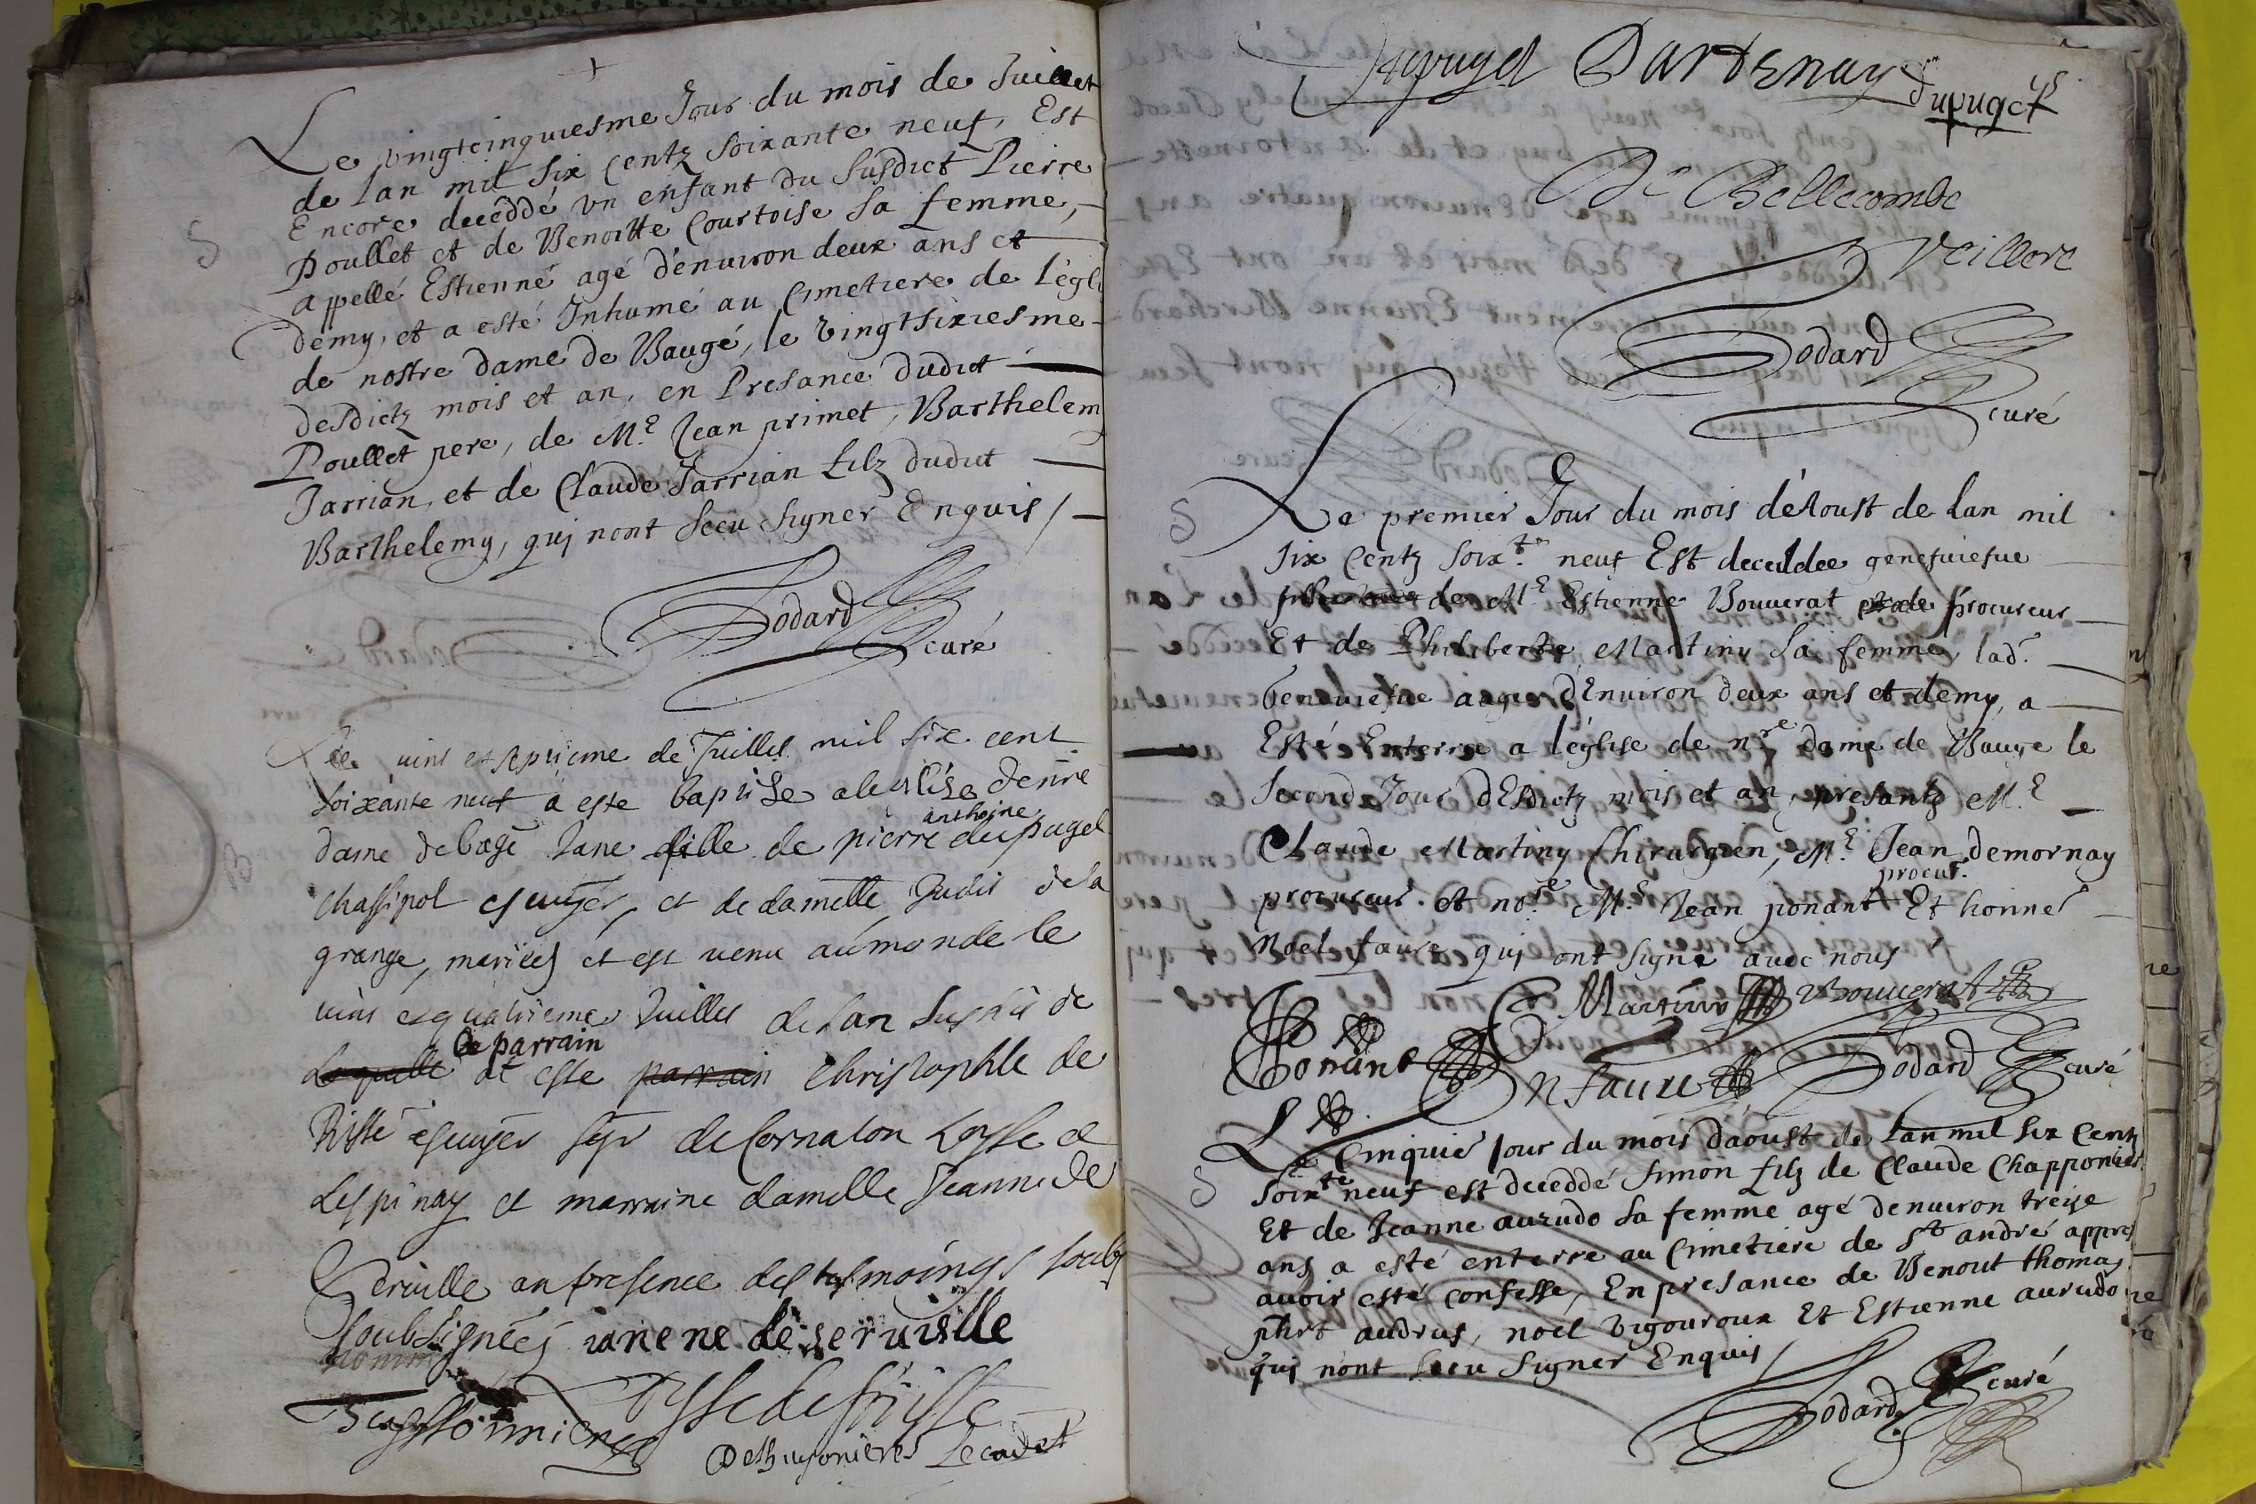 +
Le vingtcinquiesme Jour du mois de Juillet
de lan mil six Centz soixante neuf, Est
Encore deceddé un enfant du susdict Pierre
Poullet et de Benoitte Courtoise sa femme,
appellé Estienne agé d'enuiron deux ans et
demy, et a esté Inhumé au Cimetiere de l'égli
de nostre dame de Baugé, le vingtsixiesme
desdictz mois et an, en Presance dudict
Poullet pere, de Me Jean primet, Barthelem
Jarrian, et de Claude Jarrian filz dudict
Barthelemy, quj nont sceu signer Enquis /
S
Dodard
curé
Le vint et septieme de Juillet mil six cent
soixante neuf a este baptise a leglise de nre
anthoine
dame de bagé Jane fille de pierre dupuget
B
chassipol escuyer, et de damelle Judit de la
grange, mariées et est venu au monde le
vint et quatrieme Juillet de lan susdit de
le parrain
laquelle at este parrain Christophle de
Risse escuyer sgr de Cornaton Loysse et
Lespinay et marraine damelle Jeanne de
Seruille an presence des tesmoings soubs
soubsignées ianene de seruislle
Loysse de frissse
Beyssonnieres
Desbuysonieres Lecadet
Dupuget Dartenay
dupuget
De Bellecombe
Veillere
Dodard
curé
S
Le premier Jour du mois d'Aoust de lan mil
six Centz soixte neuf Est deceddee genefuiefue
de Me Estienne Bouuerat procureur
Et de Philiberte Martiny sa femme, lad.
Geneuiefue agee d'Enuiron deux ans et demy, a
Esté Enterree a l'église de nre dame de Bauge le
second Jour d'Esdictz mois et an, presantz Me
Claude Martiny Chirurgien, Me Jean demornay
procur.
procureur et nore Me Jean ponant Et honner
Noel faure quj ont signe auec nous
C Martiny Bouuerat
Ponant
N faure Dodard curé
Le Cinquie Jour du mois daoust de lan mil six Centz
S
soixte neuf est deceddé Simon filz de Claude Chapponier
Et de Jeanne aurudo sa femme agé denuiron treize
ans a esté enterre au Cimetiere de St andré appres
auoir esté confesse, En presance de Benoit thomas
phrt audrus, noel vigouroux Et Estienne aurudo
quj nont sceu signer Enquis /
Dodard curé